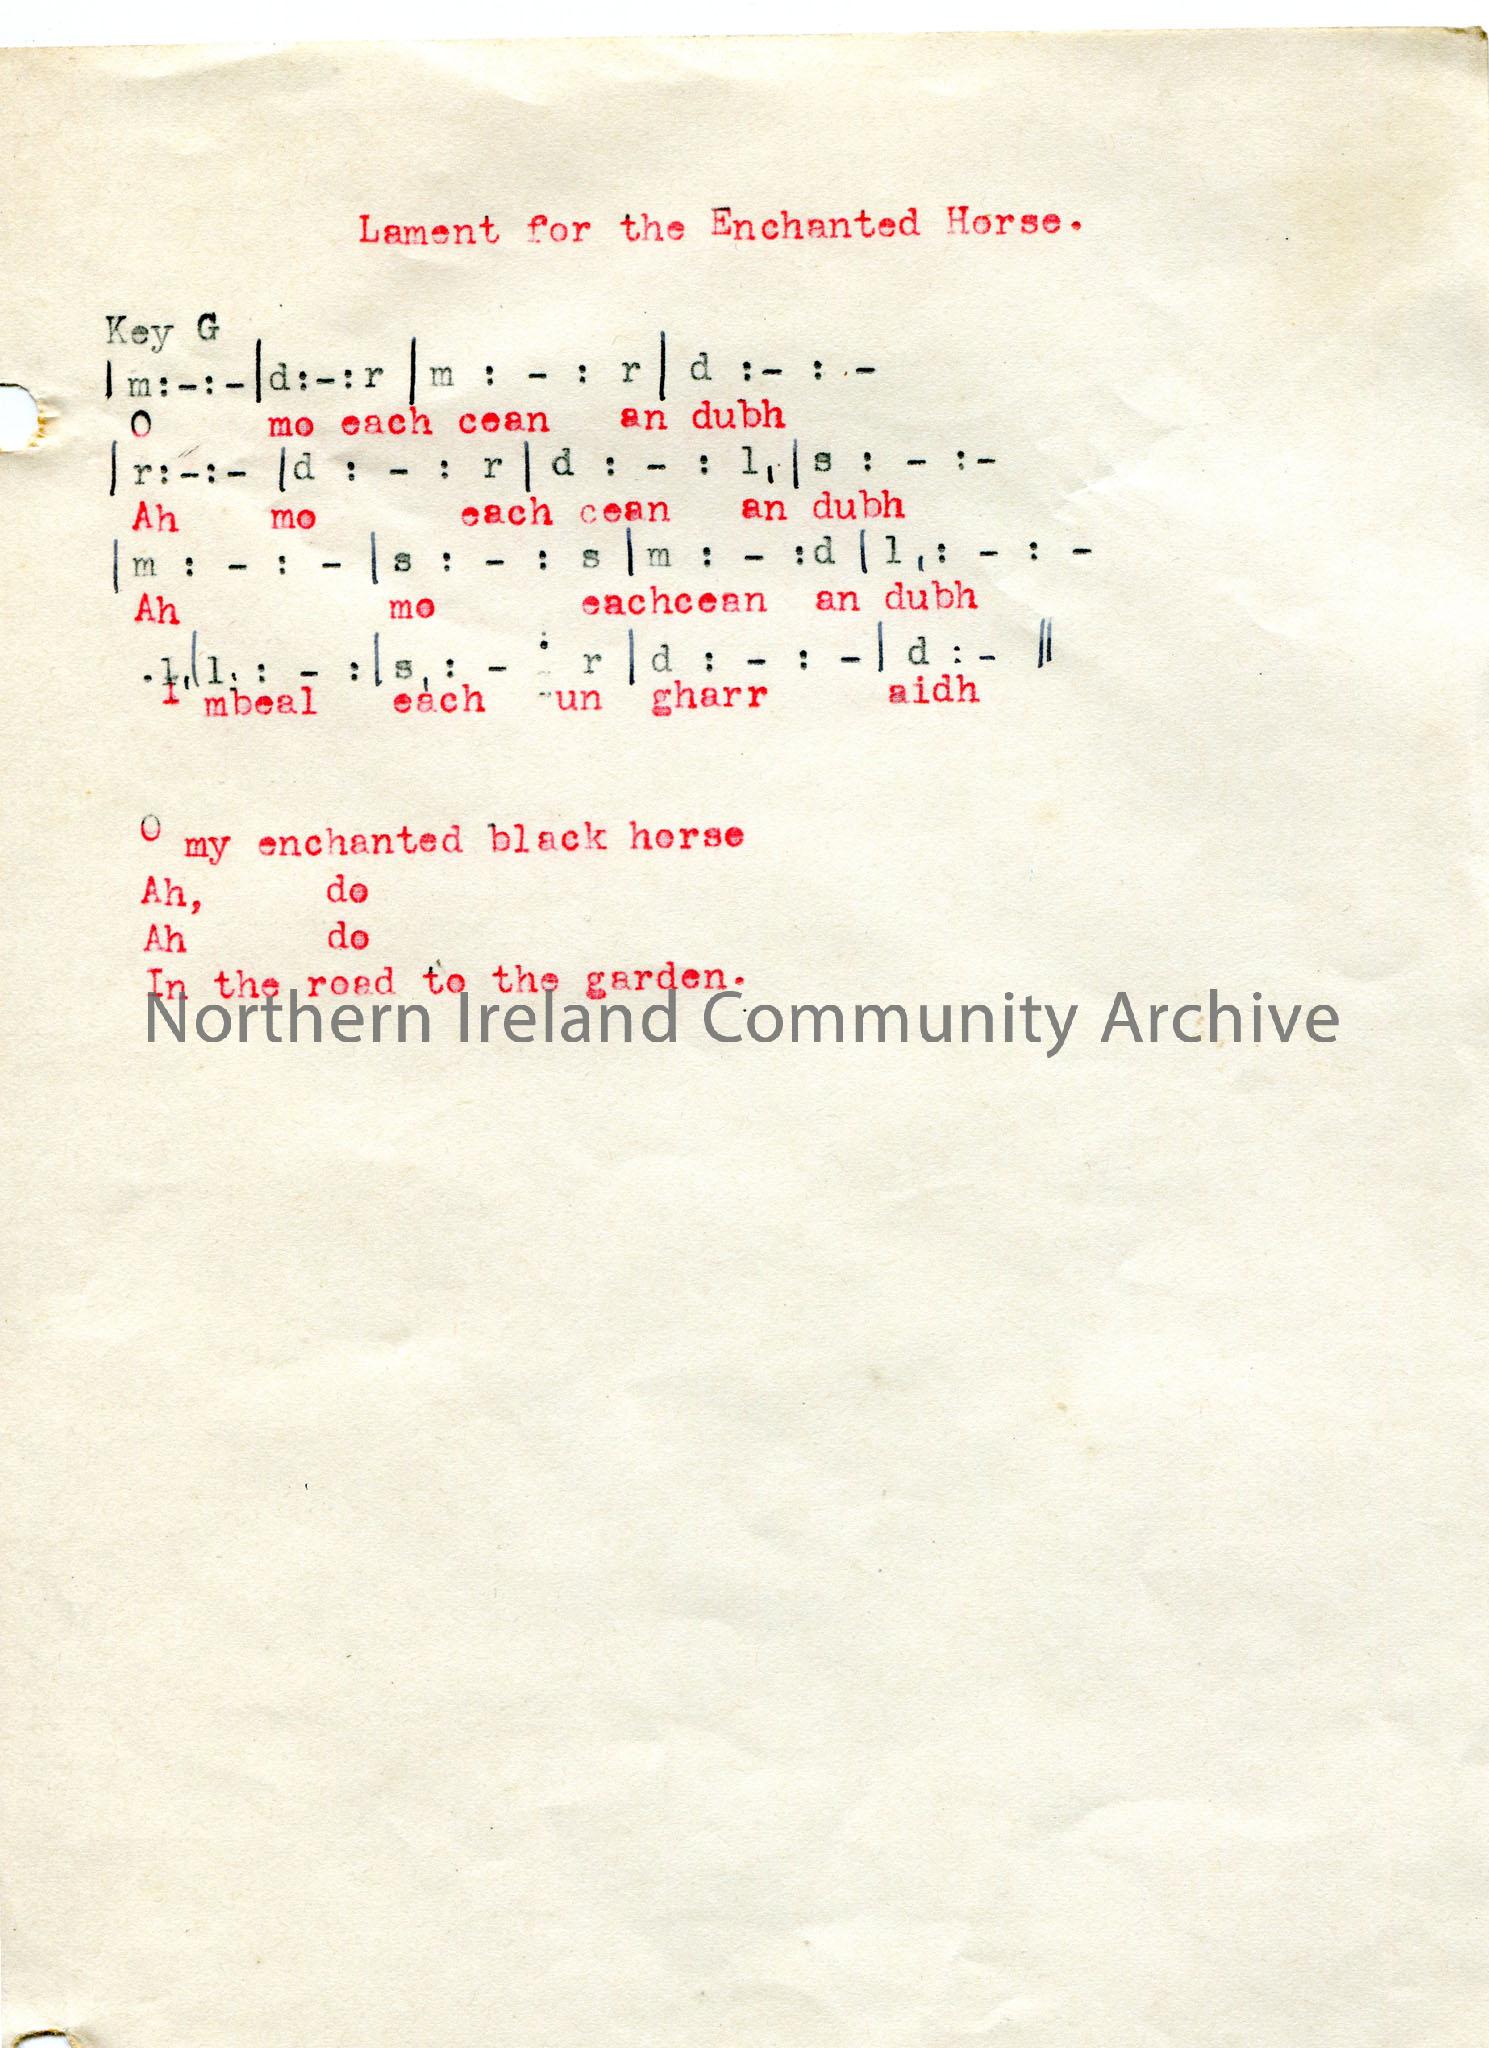 Lament for the Enchanted Horse.
Key G
|m:-:-|d:-:r |m : - : r| d :- : -
O mo each cean an dubh
|r:-:- |d : - : r| d : - : l,|s : - :-
Ah mo each cean an dubh
|m : - : - |s : - : s |m : - :d |l,: - : -
Ah mo eachcean an dubh
.l,|l, : - :|s, : - : r |d : - : -| d :- ||
I mbeal each un gharr aidh
O my enchanted black horse
Ah, do
Ah do
In the road to the garden.
Northern Ireland Community Archive